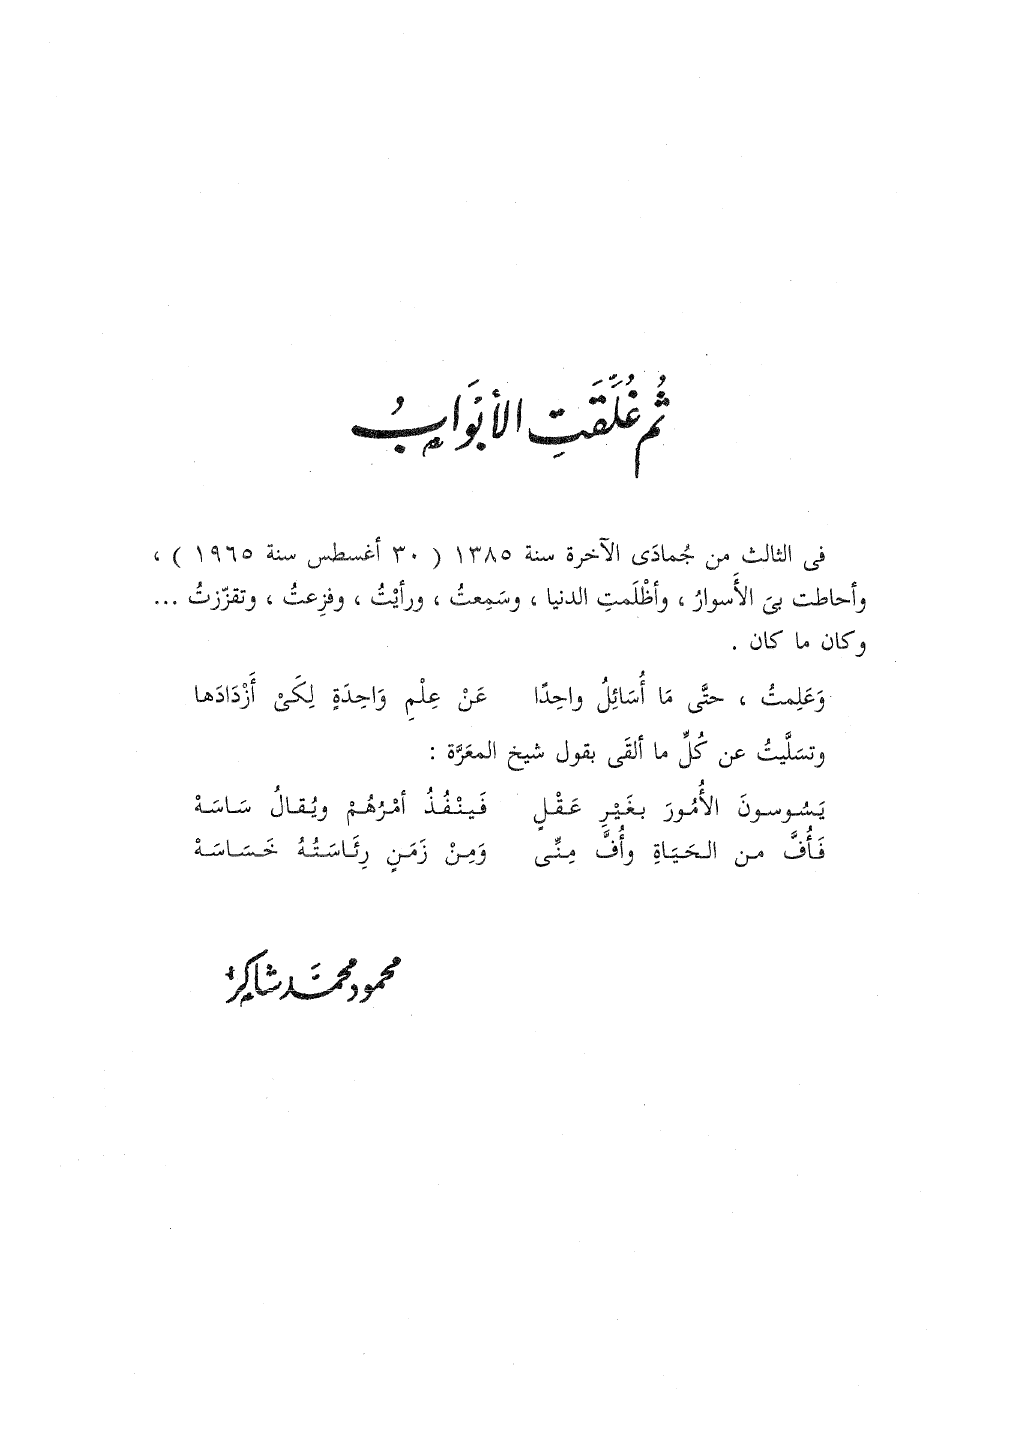 ثُم غُلِّقَتِ الأَبْوَابُ
فى الثالث من جُمادَى الآخرة سنة ١٣٨٥ ( ٣٠ أغسطس سنة ١٩٦٥ ) ،
وأحاطت بىَ الأَسوارُ ، وأظْلَمتِ الدنيا ، وسَمِعتُ ، ورأيْتُ ، وفزِعتُ ، وتقزّزتُ ...
وكان ما كان .
وَعَلِمتُ ، حتَّى مَا أُسَائِلُ واحِدًا عَنْ عِلْمِ وَاحِدَةٍ لِكَىْ أَزْدَادَها
وتسَلَّيتُ عن كُلِّ ما ألقَى بقول شيخ المعَرَّة :
يَسُوسونَ الأُمُورَ بغَيْرِ عَقْلٍ فَينْفُذُ أمْرُهُمْ ويُقالُ سَاسَهْ
فَأُفَّ من الحَيَاةِ وأُفَّ مِنِّى وَمِنْ زَمَنٍ رِئَاسَتُهُ خَسَاسَهْ
محمود محمَّد شاكر